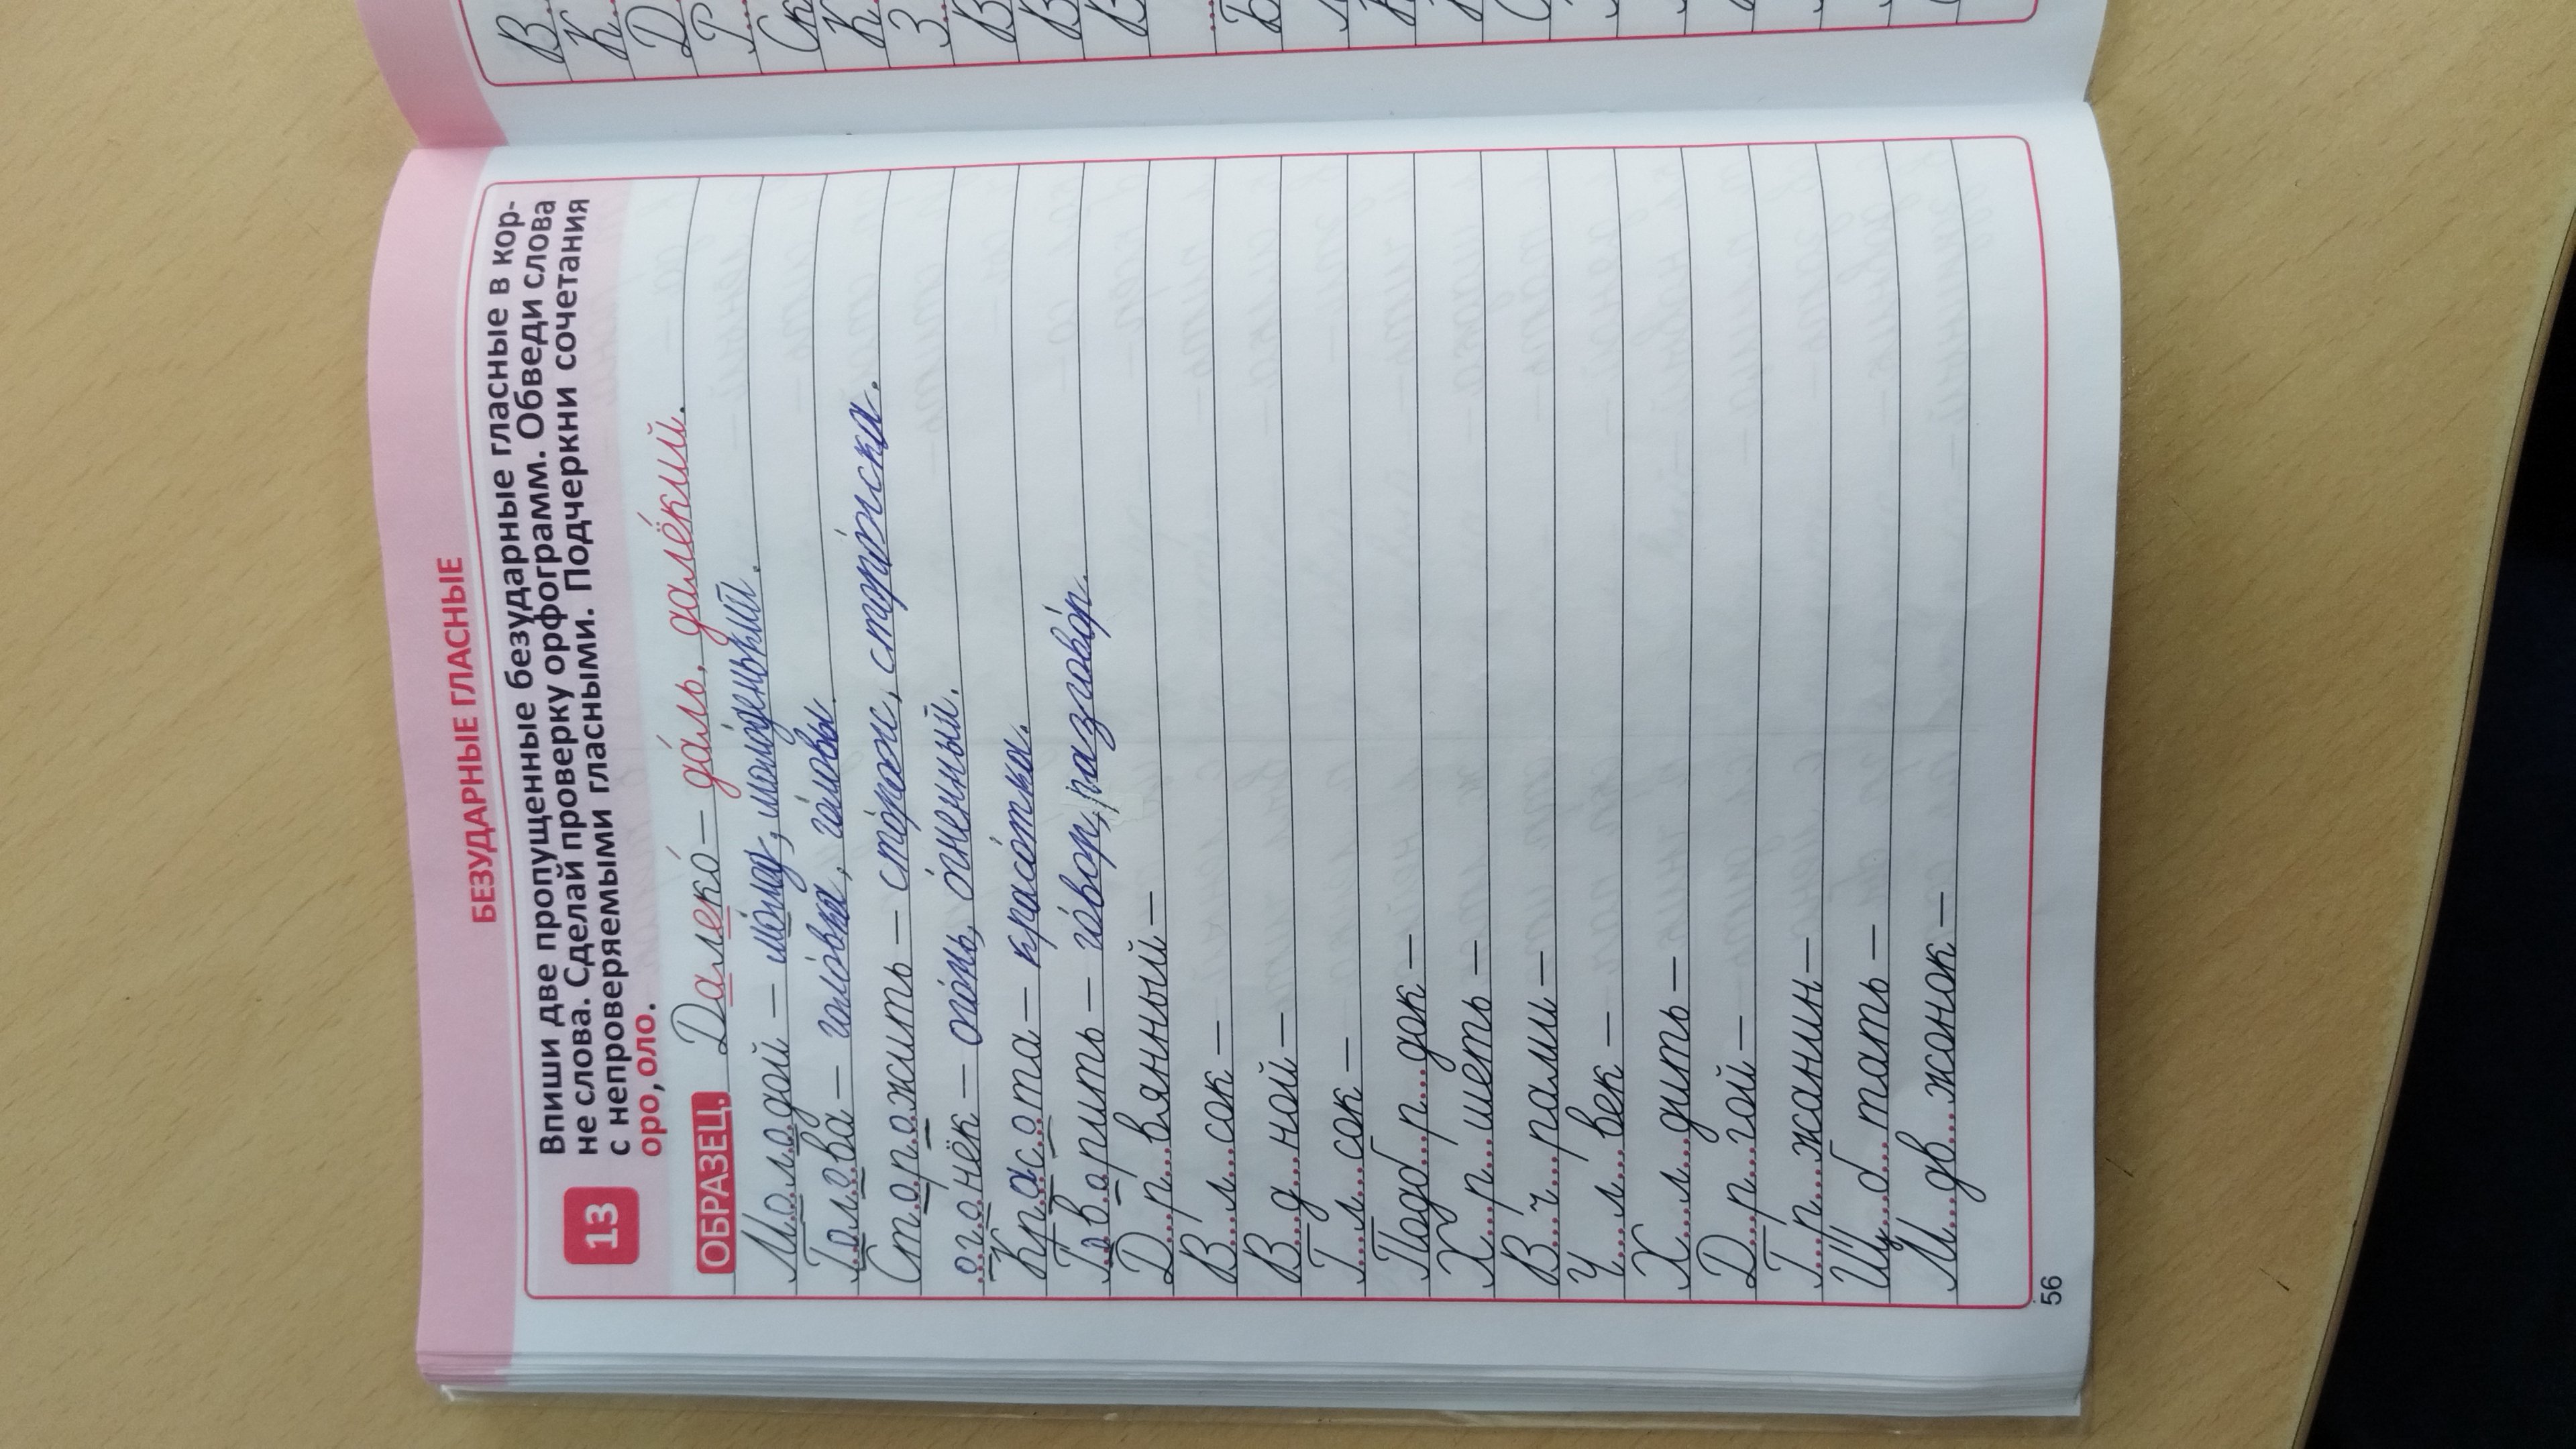 БЕЗУДАРНЫЕ ГЛАСНЫЕ
13
Впиши две пропущенные безударные гласные в кор-
не слова. Сделай проверку орфограмм. Обведи слова
с непроверяемыми гласными. Подчеркни сочетания
оро, оло.
ОБРАЗЕЦ. Далеко́ – да́ль, далёкий.
Молодой – мо́лод, моло́денький.
Голова – голо́вка, го́ловы.
Сторожить – сто́рож, сторо́жка.
огонёк – ого́нь, о́гненный.
Красота – красо́тка.
Говорить – го́вор, разгово́р.
Д...р...вянный –
В...л...сок –
В...д...ной –
Г...л...сок –
Подб...р...док –
Х...р...шеть –
В...ч...рами –
Ч...л...век –
Х...л...дить –
Д...р...гой –
Г...р...жанин –
Щ...б...тать –
М...дв...жонок –
56
В
К
Д
Р
Ск
К
З
В
В
В
Б